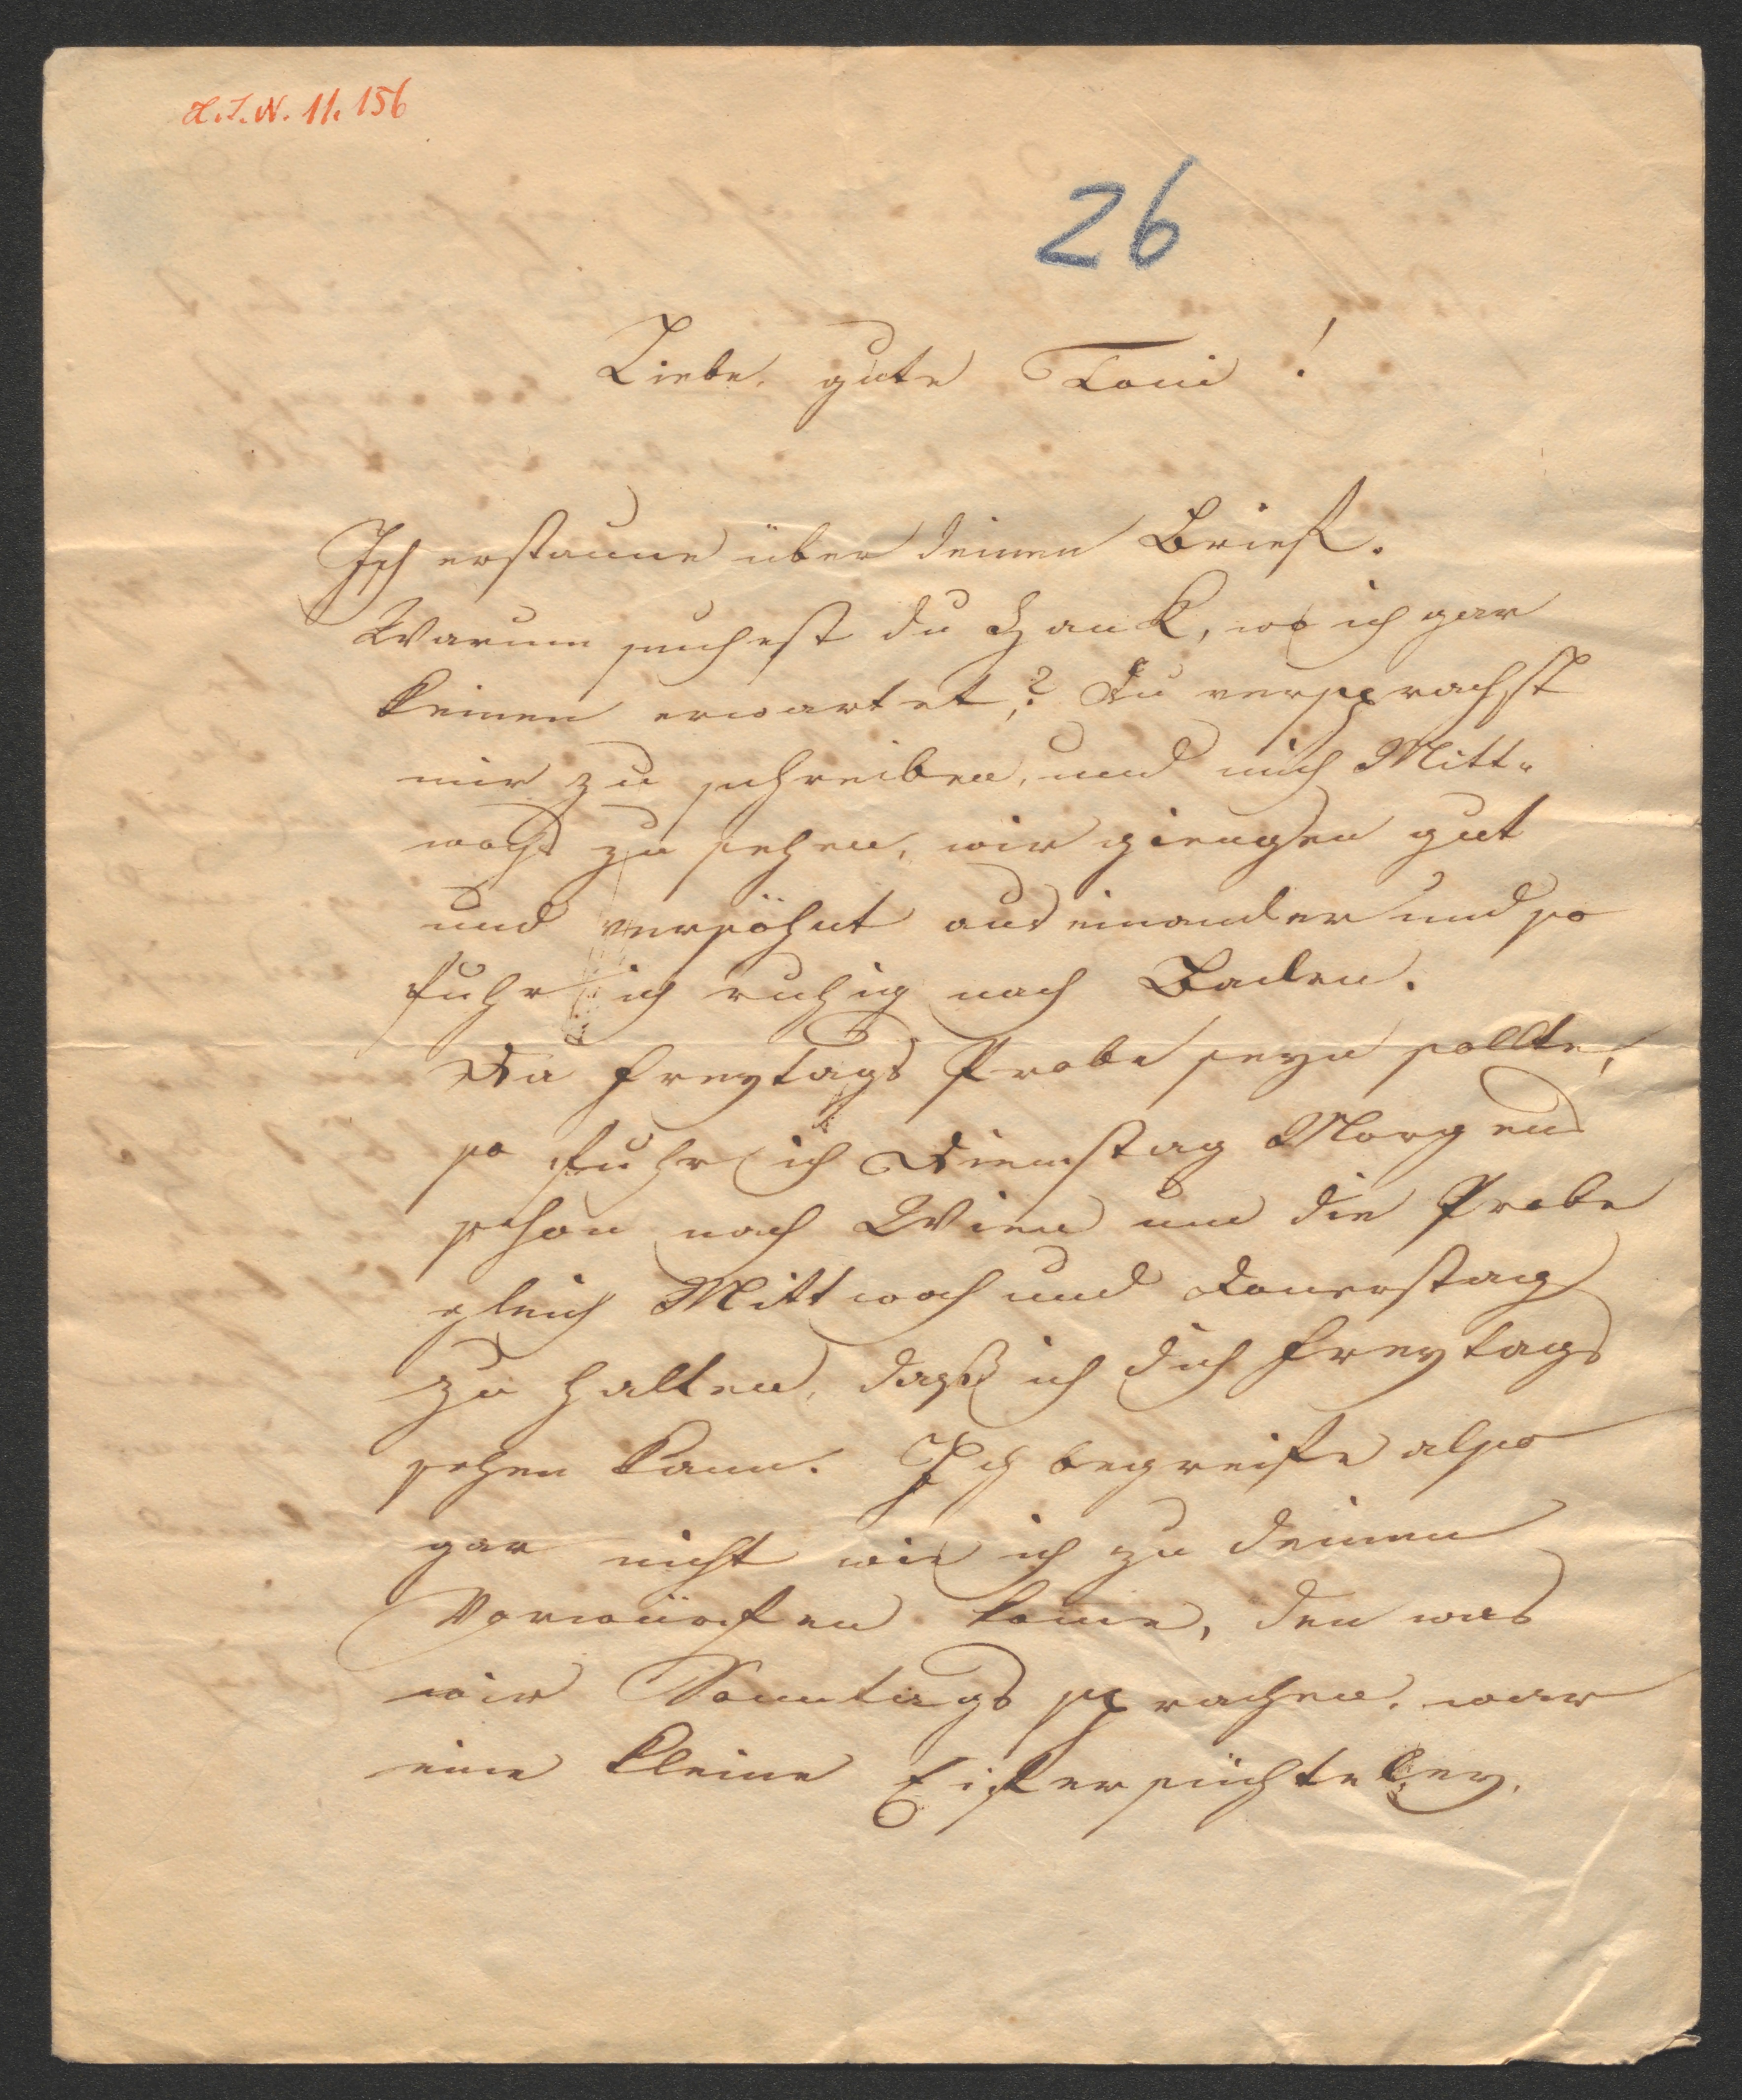 H.I.N. 11.156
26
Liebe, gute Toni!
Ich erstaune über deinen Brief.
Warum suchest du Zank, wo ich gar
keinen erwartet,? Du versprachst
mir zu schreiben, und mich Mitt-
wochs zu sehen, wir giengen gut
und versöhnt aus einander und so
fuhr ich ruhig nach Baden.
Da Freytags Probe seyn sollte,
so fuhr ich Dienstag Morgens
schon nach Wien um die Probe
gleich Mittwoch und Donerstag
zu halten, daß ich dich Freytags
sehen kann. Ich begreife also
gar nicht wie ich zu deinen
Vorwürfen kome, den was
wir Sonntags sprachen, war
eine kleine Eifersüchteley,